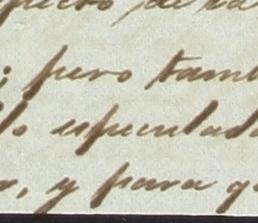 pecto de la
; pero tamb
lo especulad
r, y para q